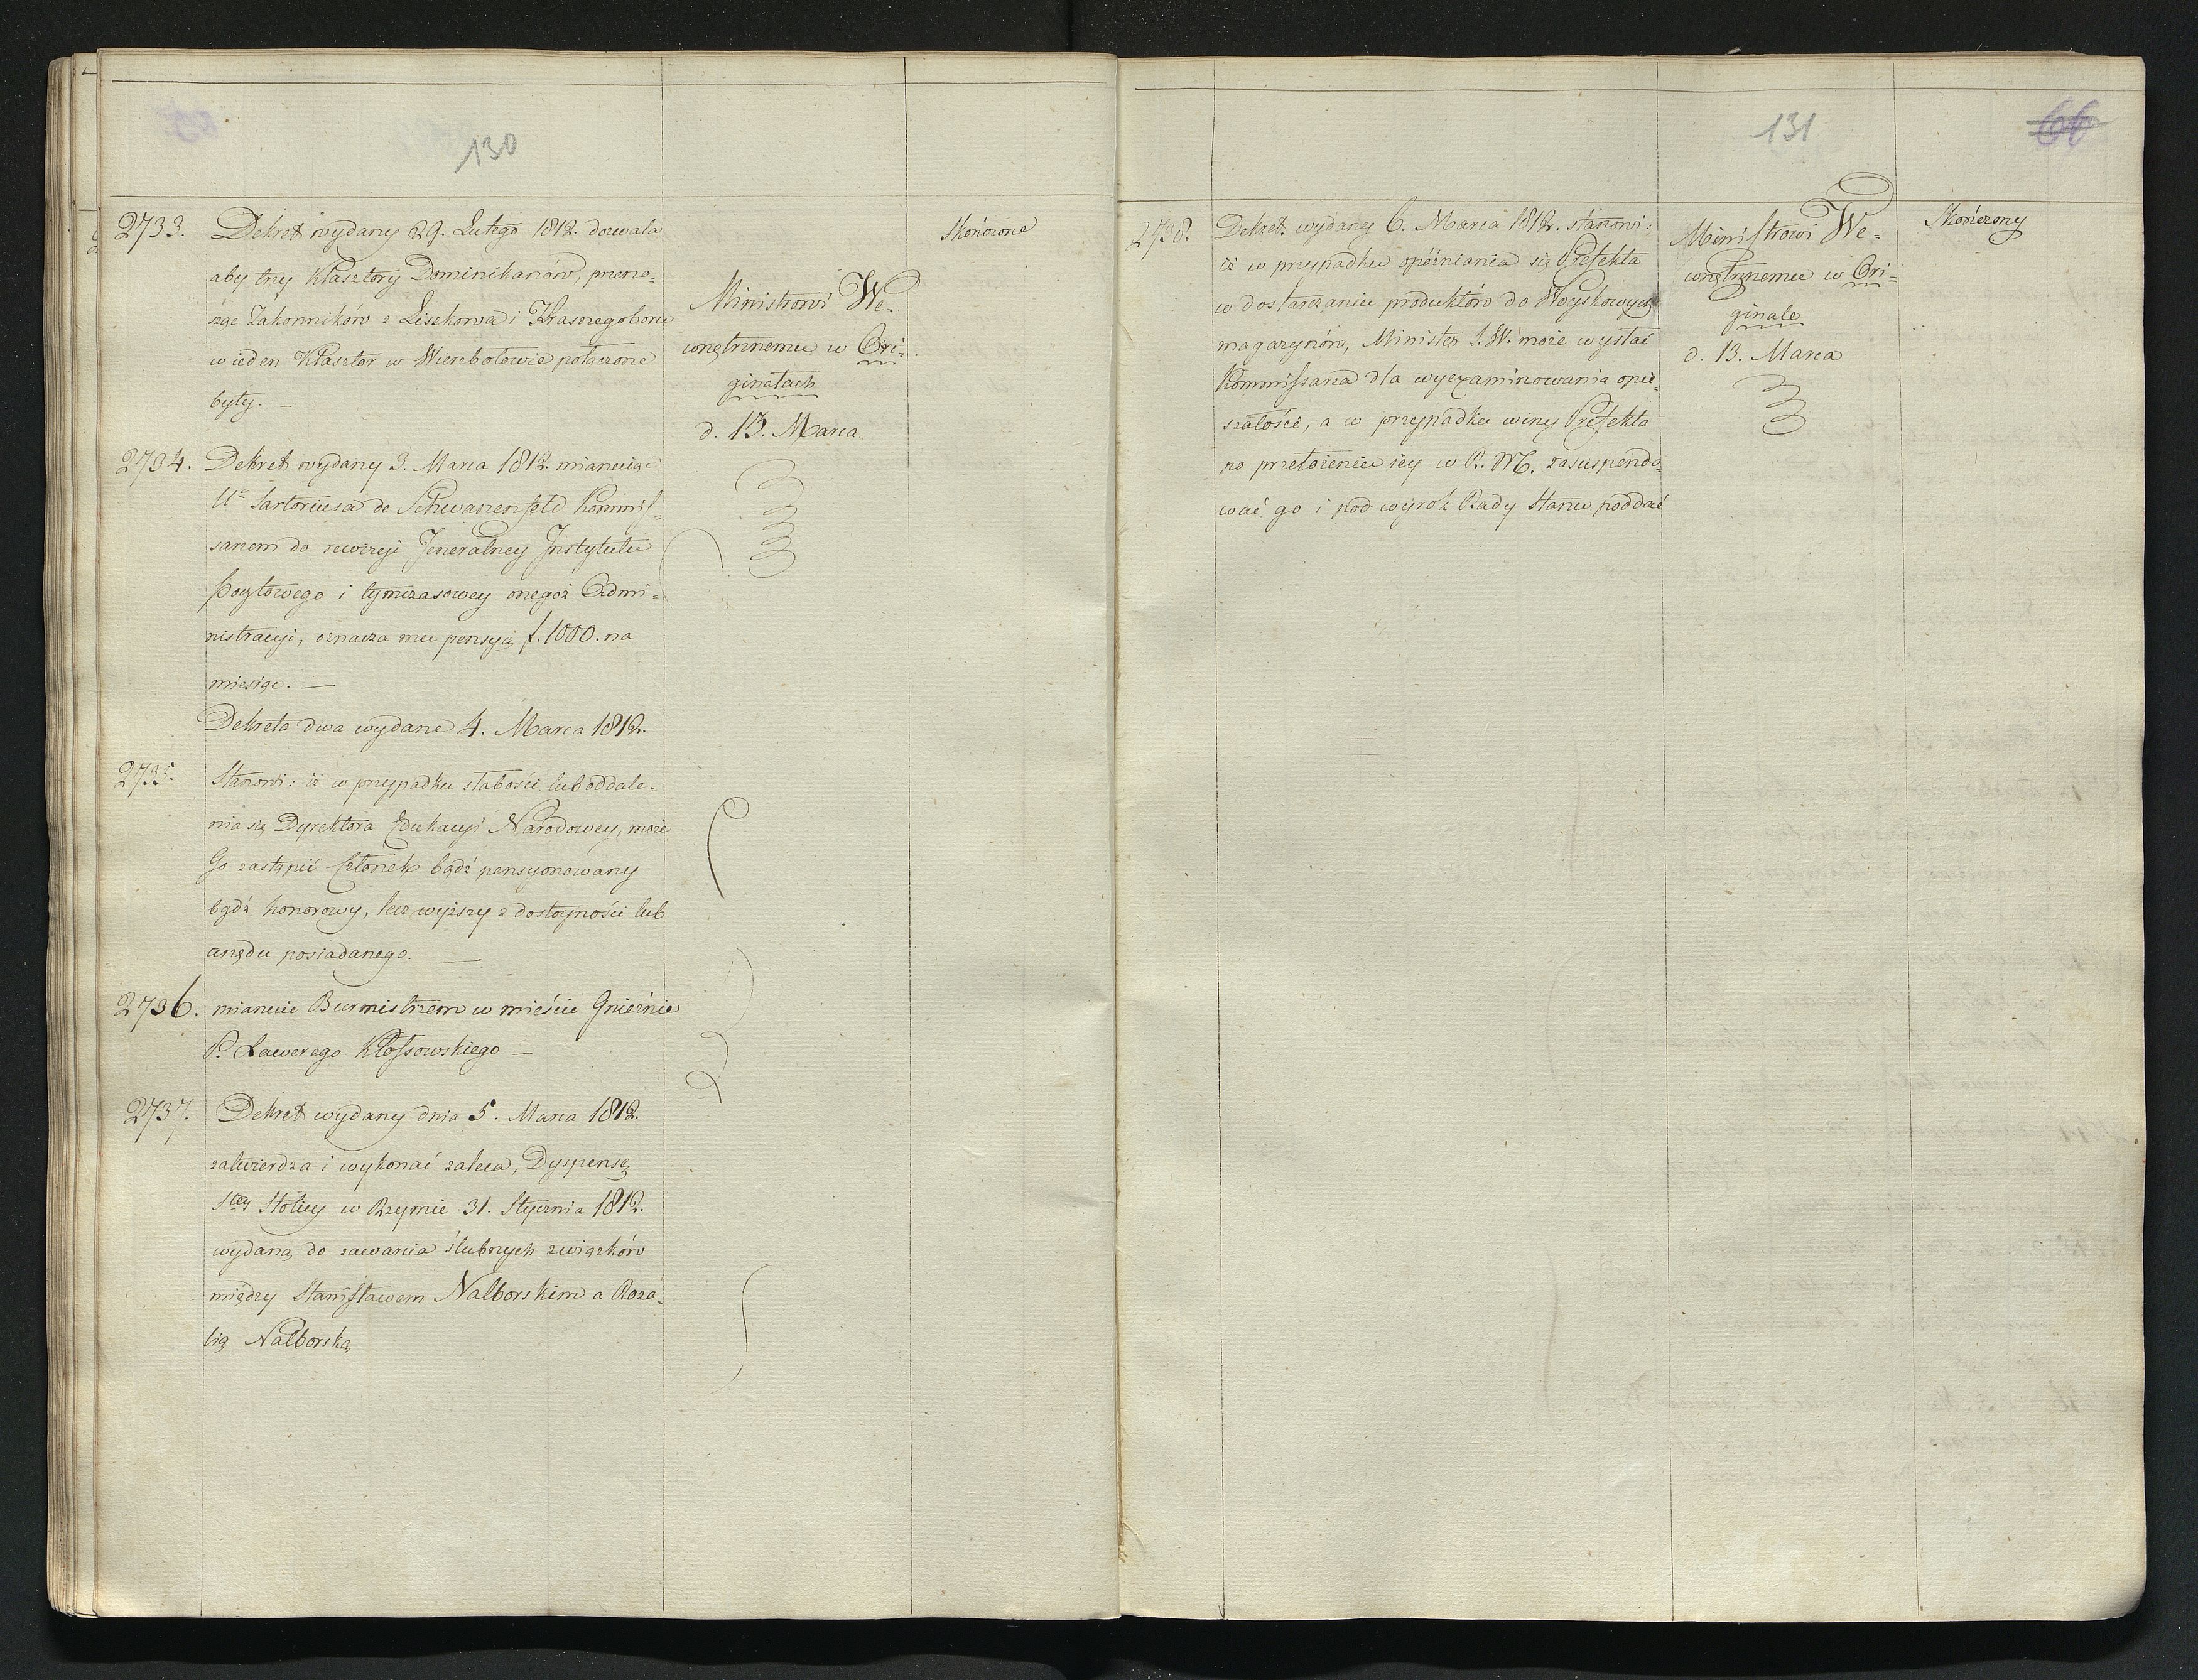 130
2733. Dekret wydany 29. Lutego 1812. dozwala
aby trzy Klasztory Dominikanów, przeno-
sząc Zakonników z Liszkowa i Krasnegoboru
w ieden Klasztor w Wierzbołowie połączone
były. —
Ministrowi We-
wnętrznemu w Ori-
ginałach
d. 13. Marca
Skończone
2734. Dekret wydany 3. Marca 1812. mianuiąc
Ur Sartoriusa de Schwanenfeld Kommis-
sarzem do rewizyi Jeneralney Instytutu
Pocztowego i tymczasowey onegoż Admi-
nistracyi, oznacza mu pensyą f. 1000. na
miesiąc. —
Dekreta dwa wydane 4. Marca 1812.
2735. Stanowi: iż w przypadku słabości lub oddale-
nia się Dyrektora Edukacyi Narodowey, może
Go zastąpić Członek bądź pensyonowany
bądź honorowy, lecz wyższy z dostoyności lub
urzędu posiadanego. —
2736. mianuie Burmistrzem w mieście Gnieźnie
P. Xawerego Kłossowskiego —
2737. Dekret wydany dnia 5. Marca 1812.
zatwierdza i wykonać zaleca, Dyspensę
Stey Stolicy w Rzymie 31. Stycznia 1812.
wydaną do zawarcia ślubnych związków
między Stanisławem Nalborskim a Roza-
lią Nalborską
131
66
2738. Dekret wydany 6. Marca 1812. stanowi:
iż w przypadku opóźniania się Prefekta
w dostarczaniu produktów do Woyskowych
magazynów, Minister S. W. może wysłać
Kommissarza dla wyexaminowania opie-
szałości, a w przypadku winy Prefekta
po przełożeniu iey w R. M. zasuspendo-
wać go i pod wyrok Rady Stanu poddać
Ministrowi We-
wnętrznemu w Ori-
ginale
d. 13. Marca
Skończony